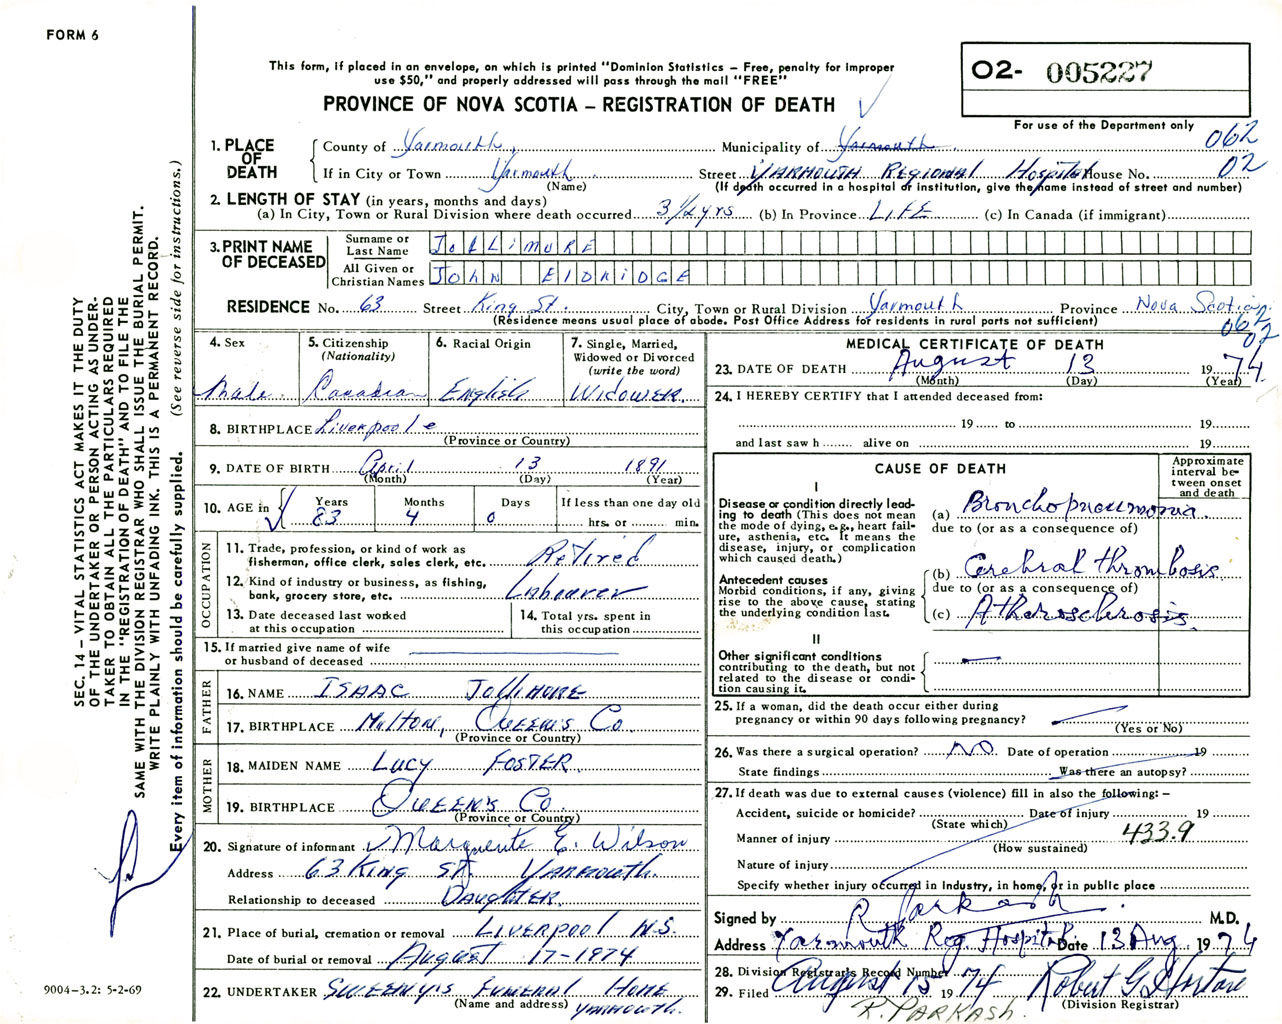 FORM 6
This form, if placed in an envelope, on which is printed "Dominion Statistics – Free, penalty for improper
use $50," and properly addressed will pass through the mail "FREE"
PROVINCE OF NOVA SCOTIA – REGISTRATION OF DEATH
O2- 005227
For use of the Department only
062
02
1. PLACE OF DEATH
County of Yarmouth Municipality of Yarmouth
If in City or Town Yarmouth Street YARMOUTH REGIONAL Hospital House No.
(Name) (If death occurred in a hospital or institution, give the name instead of street and number)
2. LENGTH OF STAY (in years, months and days)
(a) In City, Town or Rural Division where death occurred 3 1/2 yrs (b) In Province LIFE (c) In Canada (if immigrant)
3. PRINT NAME OF DECEASED
Surname or Last Name JOLLIMORE
All Given or Christian Names JOHN ELDRIDGE
RESIDENCE No. 63 Street King St. City, Town or Rural Division Yarmouth Province Nova Scotia
(Residence means usual place of abode. Post Office Address for residents in rural parts not sufficient)
062
02
4. Sex 5. Citizenship (Nationality) 6. Racial Origin 7. Single, Married, Widowed or Divorced (write the word)
Male Canadian English WIDOWER
8. BIRTHPLACE Liverpool
(Province or Country)
9. DATE OF BIRTH April 13 1891
(Month) (Day) (Year)
10. AGE in Years Months Days If less than one day old
83 4 0 hrs. or min.
OCCUPATION
11. Trade, profession, or kind of work as
fisherman, office clerk, sales clerk, etc. Retired
12. Kind of industry or business, as fishing,
bank, grocery store, etc. Labourer
13. Date deceased last worked
at this occupation
14. Total yrs. spent in
this occupation
15. If married give name of wife
or husband of deceased
FATHER
16. NAME ISAAC JOLLIMORE
17. BIRTHPLACE Milton, QUEEN'S Co
(Province or Country)
MOTHER
18. MAIDEN NAME LUCY FOSTER
19. BIRTHPLACE QUEEN'S Co.
(Province or Country)
20. Signature of informant Marguerite E. Wilson
Address 63 King ST. YARMOUTH
Relationship to deceased DAUGHTER
21. Place of burial, cremation or removal LIVERPOOL N.S.
Date of burial or removal August 17-1974
22. UNDERTAKER SWEENY'S FUNERAL HOME
(Name and address) YARMOUTH.
MEDICAL CERTIFICATE OF DEATH
23. DATE OF DEATH August 13 1974
(Month) (Day) (Year)
24. I HEREBY CERTIFY that I attended deceased from:
19 to 19
and last saw h alive on 19
CAUSE OF DEATH
Approximate interval between onset and death
I
Disease or condition directly lead-
ing to death (This does not mean
the mode of dying, e.g., heart fail-
ure, asthenia, etc. It means the
disease, injury, or complication
which caused death.)
(a) Bronchopneumonia
due to (or as a consequence of)
Antecedent causes
Morbid conditions, if any, giving
rise to the above cause, stating
the underlying condition last.
(b) Cerebral thrombosis
due to (or as a consequence of)
(c) Atherosclerosis
II
Other significant conditions
contributing to the death, but not
related to the disease or condi-
tion causing it.
25. If a woman, did the death occur either during
pregnancy or within 90 days following pregnancy?
(Yes or No)
26. Was there a surgical operation? NO Date of operation 19
State findings Was there an autopsy?
27. If death was due to external causes (violence) fill in also the following: –
Accident, suicide or homicide? Date of injury 19
(State which)
Manner of injury 433.9
(How sustained)
Nature of injury
Specify whether injury occurred in Industry, in home, or in public place
Signed by R Parkash M.D.
Address Yarmouth Reg. Hospital Date 13 Aug 1974
28. Division Registrar's Record Number
29. Filed August 15 1974
(Division Registrar)
R. PARKASH.
SEC. 14 – VITAL STATISTICS ACT MAKES IT THE DUTY
OF THE UNDERTAKER OR PERSON ACTING AS UNDER-
TAKER TO OBTAIN ALL THE PARTICULARS REQUIRED
IN THE "REGISTRATION OF DEATH" AND TO FILE THE
SAME WITH THE DIVISION REGISTRAR WHO SHALL ISSUE THE BURIAL PERMIT.
WRITE PLAINLY WITH UNFADING INK. THIS IS A PERMANENT RECORD.
Every item of information should be carefully supplied. (See reverse side for instructions.)
9004-3.2: 5-2-69